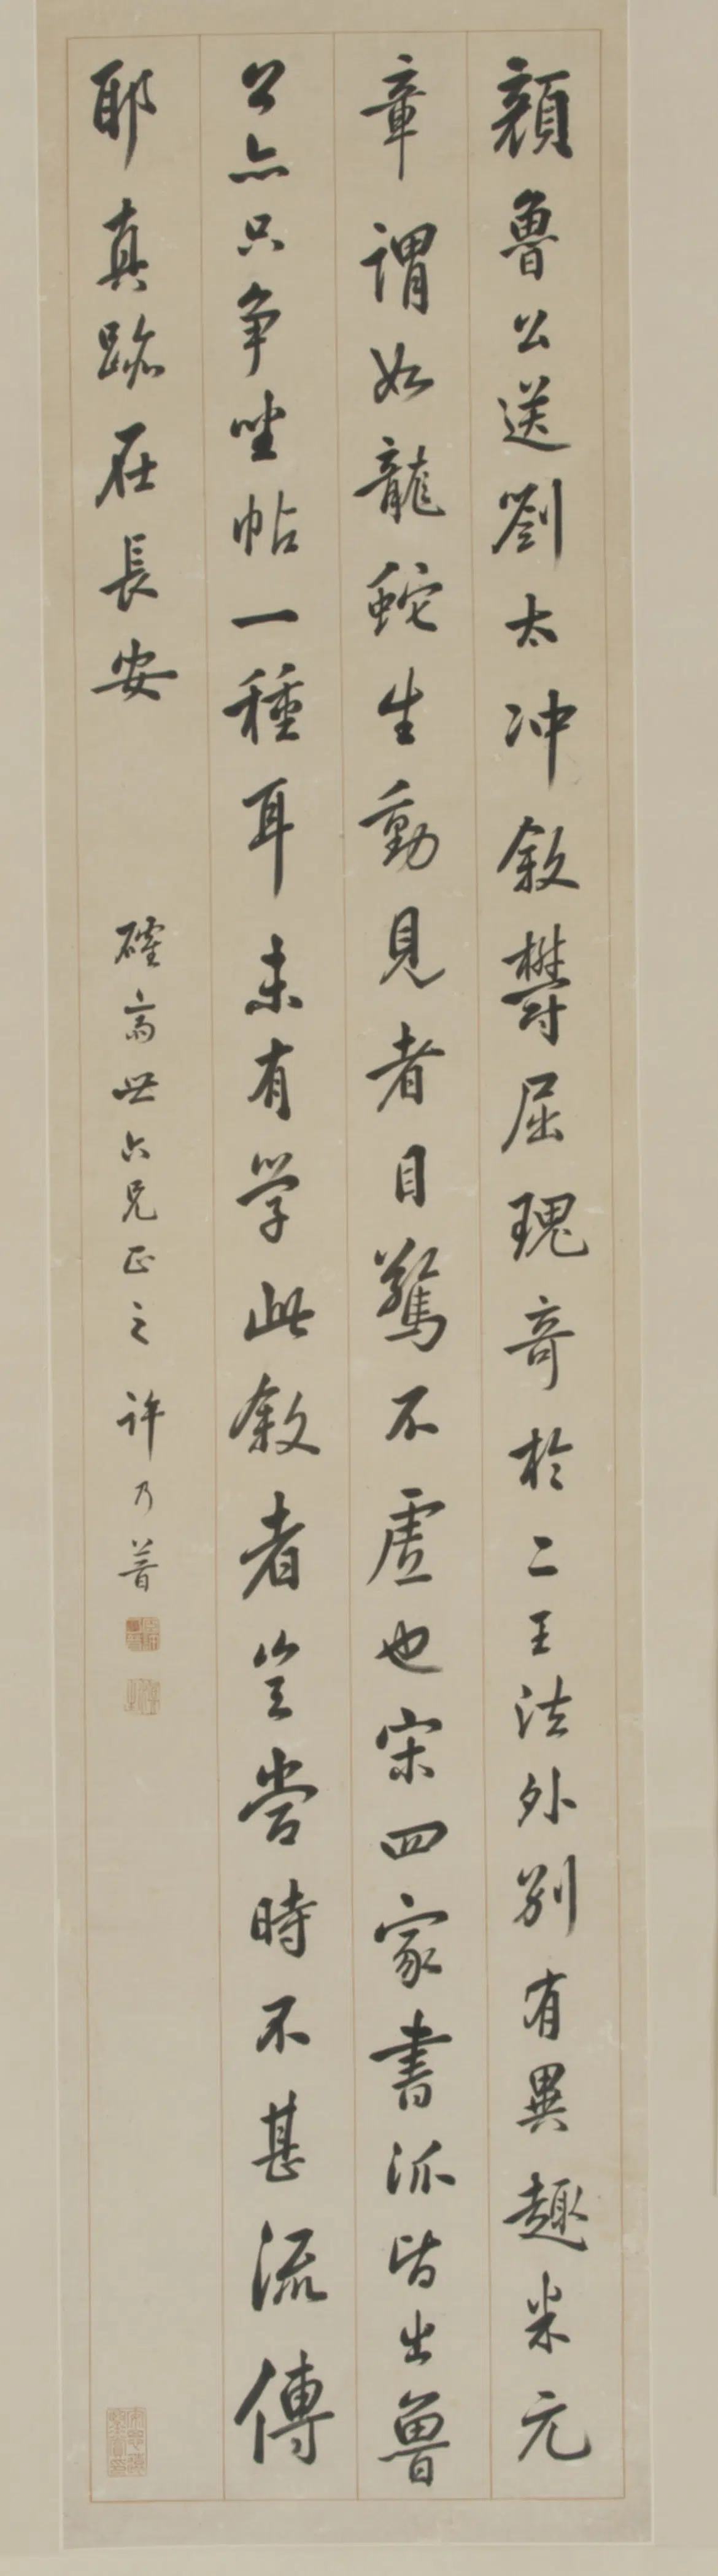 顏魯公送劉太冲敘欝屈瑰奇於二王法外別有異趣米元
章謂如龍蛇生動見者目驚不虛也宋四家書派皆出魯
公亦只争坐帖一種耳未有学此敘者豈當時不甚流傳
耶真跡在長安
確斋世六兄正之 許乃普